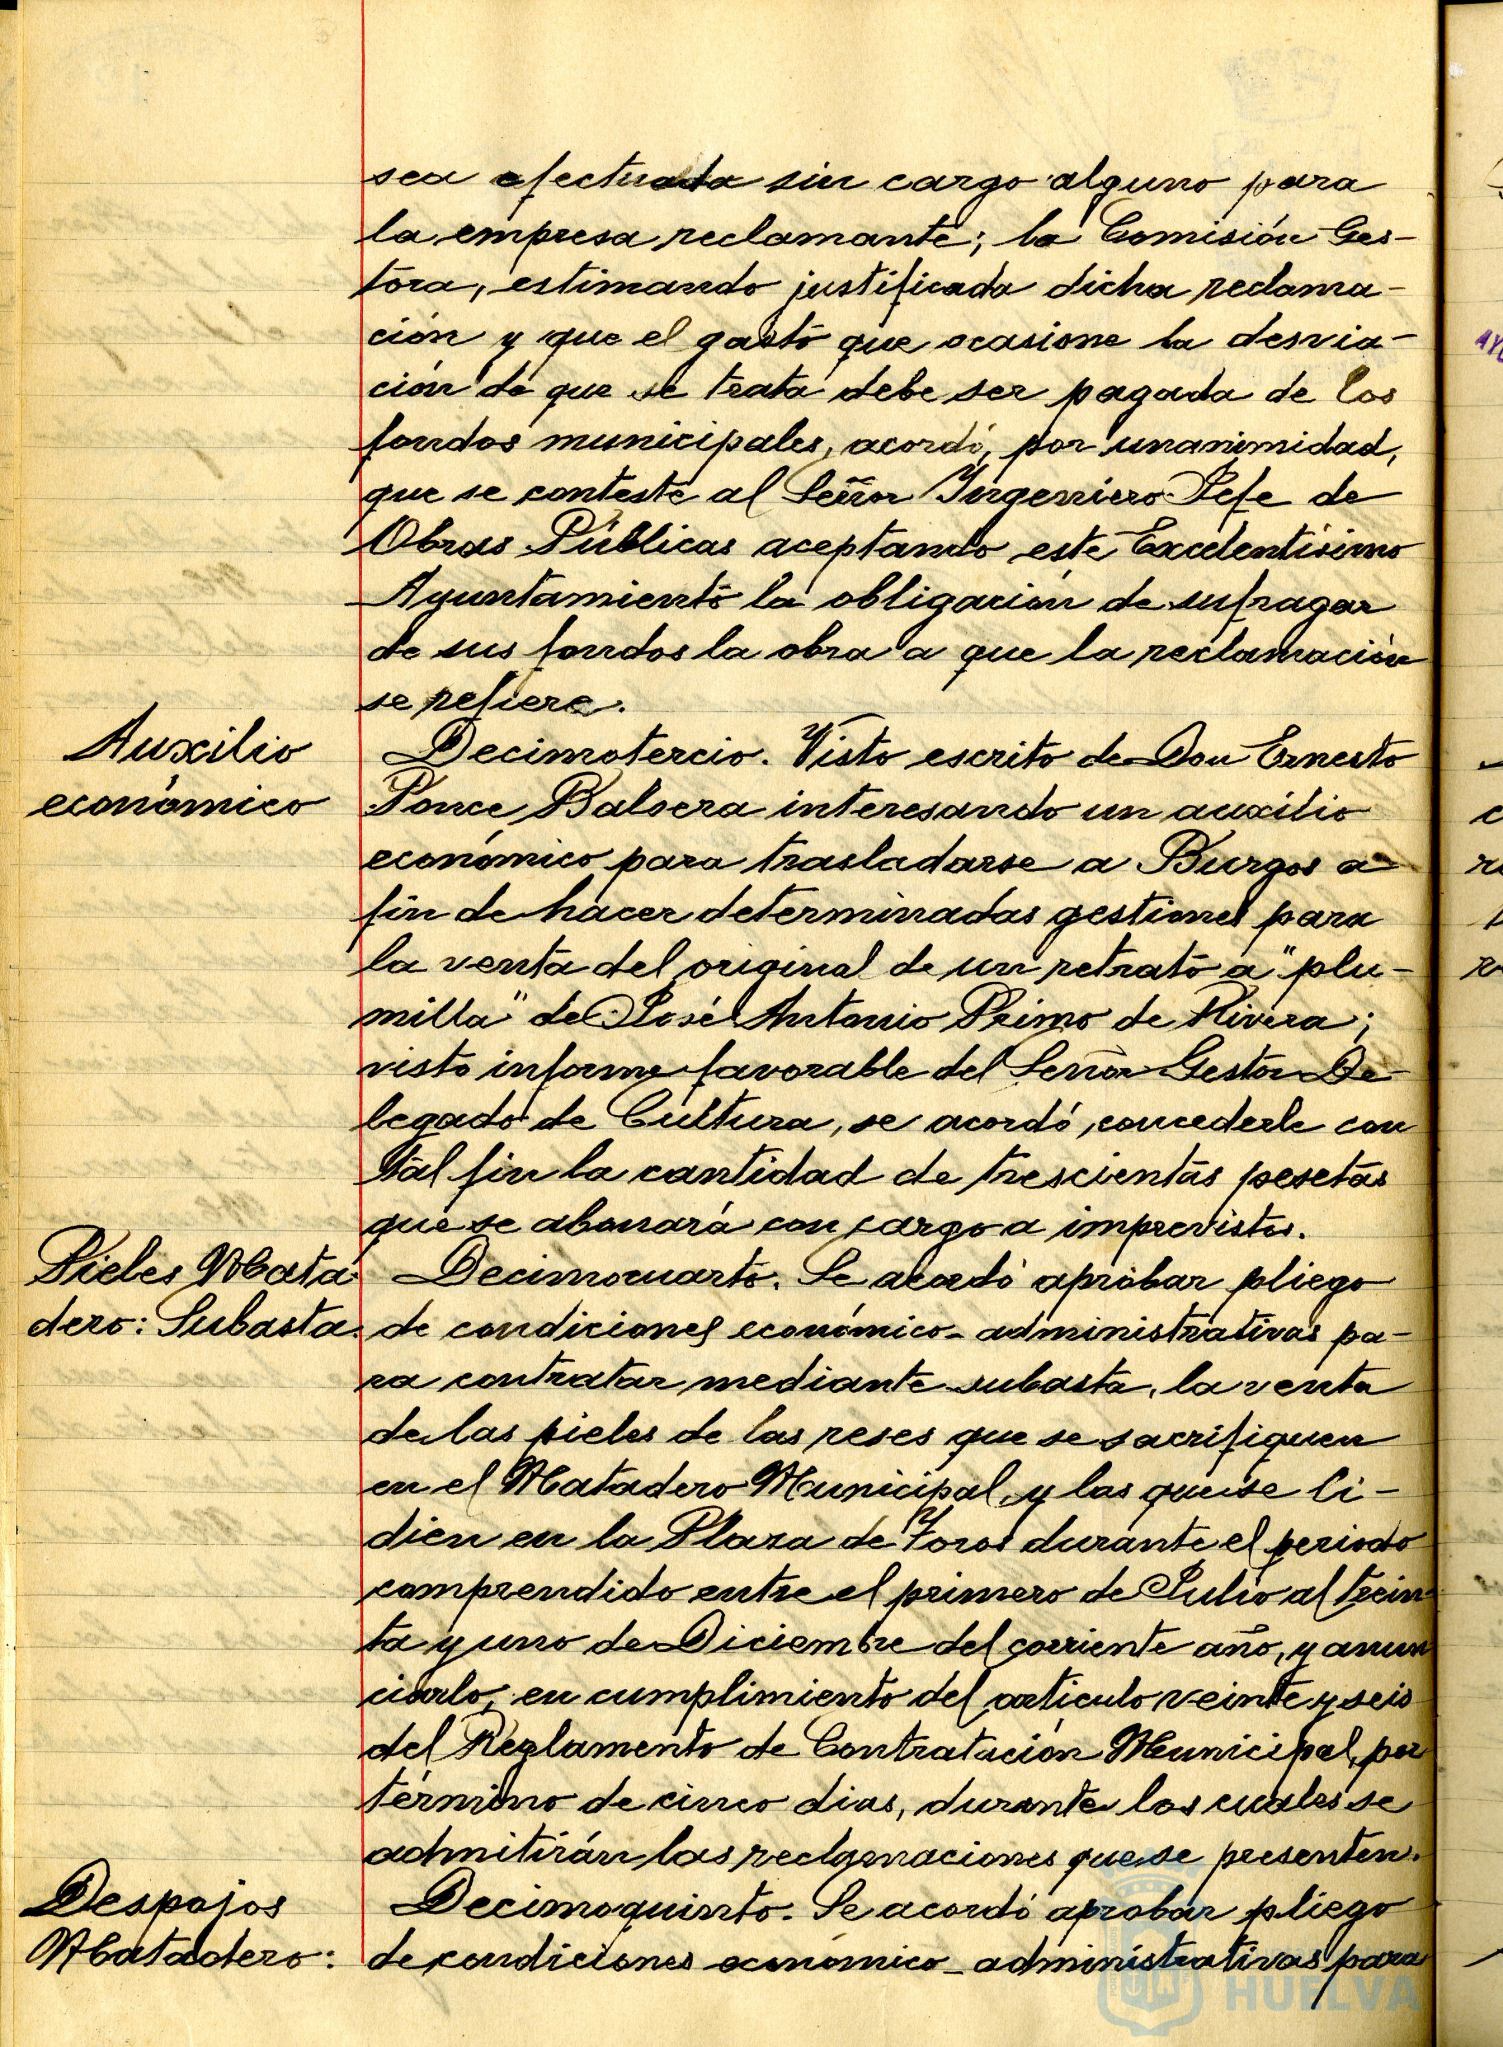 sea efectuada sin cargo alguno para
la empresa reclamante; la Comisión Ges-
tora, estimando justificada dicha reclama-
ción y que el gasto que ocasione la desvia-
ción de que se trata debe ser pagada de los
fondos municipales, acordó, por unanimidad,
que se conteste al Señor Ingeniero Jefe de
Obras Públicas aceptando este Excelentísimo
Ayuntamiento la obligación de sufragar
de sus fondos la obra a que la reclamación
se refiere.
Auxilio
económico
Decimotercio. Visto escrito de Don Ernesto
Ponce Balsera interesando un auxilio
económico para trasladarse a Burgos a
fin de hacer determinadas gestiones para
la venta del original de un retrato a "plu-
milla" de José Antonio Primo de Rivera;
visto informe favorable del Señor Gestor De-
legado de Cultura, se acordó, concederle con
tal fin la cantidad de trescientas pesetas
que se abonará con cargo a imprevistos.
Pieles Mata
dero: Subasta.
Decimocuarto. Se acordó aprobar pliego
de condiciones económico-administrativas pa-
ra contratar mediante subasta, la venta
de las pieles de las reses que se sacrifiquen
en el Matadero Municipal, y las que se li-
dien en la Plaza de Toros durante el periodo
comprendido entre el primero de Julio al trein-
ta y uno de Diciembre del corriente año, y anun
ciarlo, en cumplimiento del artículo veinte y seis
del Reglamento de Contratación Municipal, por
término de cinco dias, durante los cuales se
admitirán las reclamaciones que se presenten.
Despojos
Matadero:
Decimoquinto. Se acordó aprobar pliego
de condiciones económico-administrativas para
HUELVA